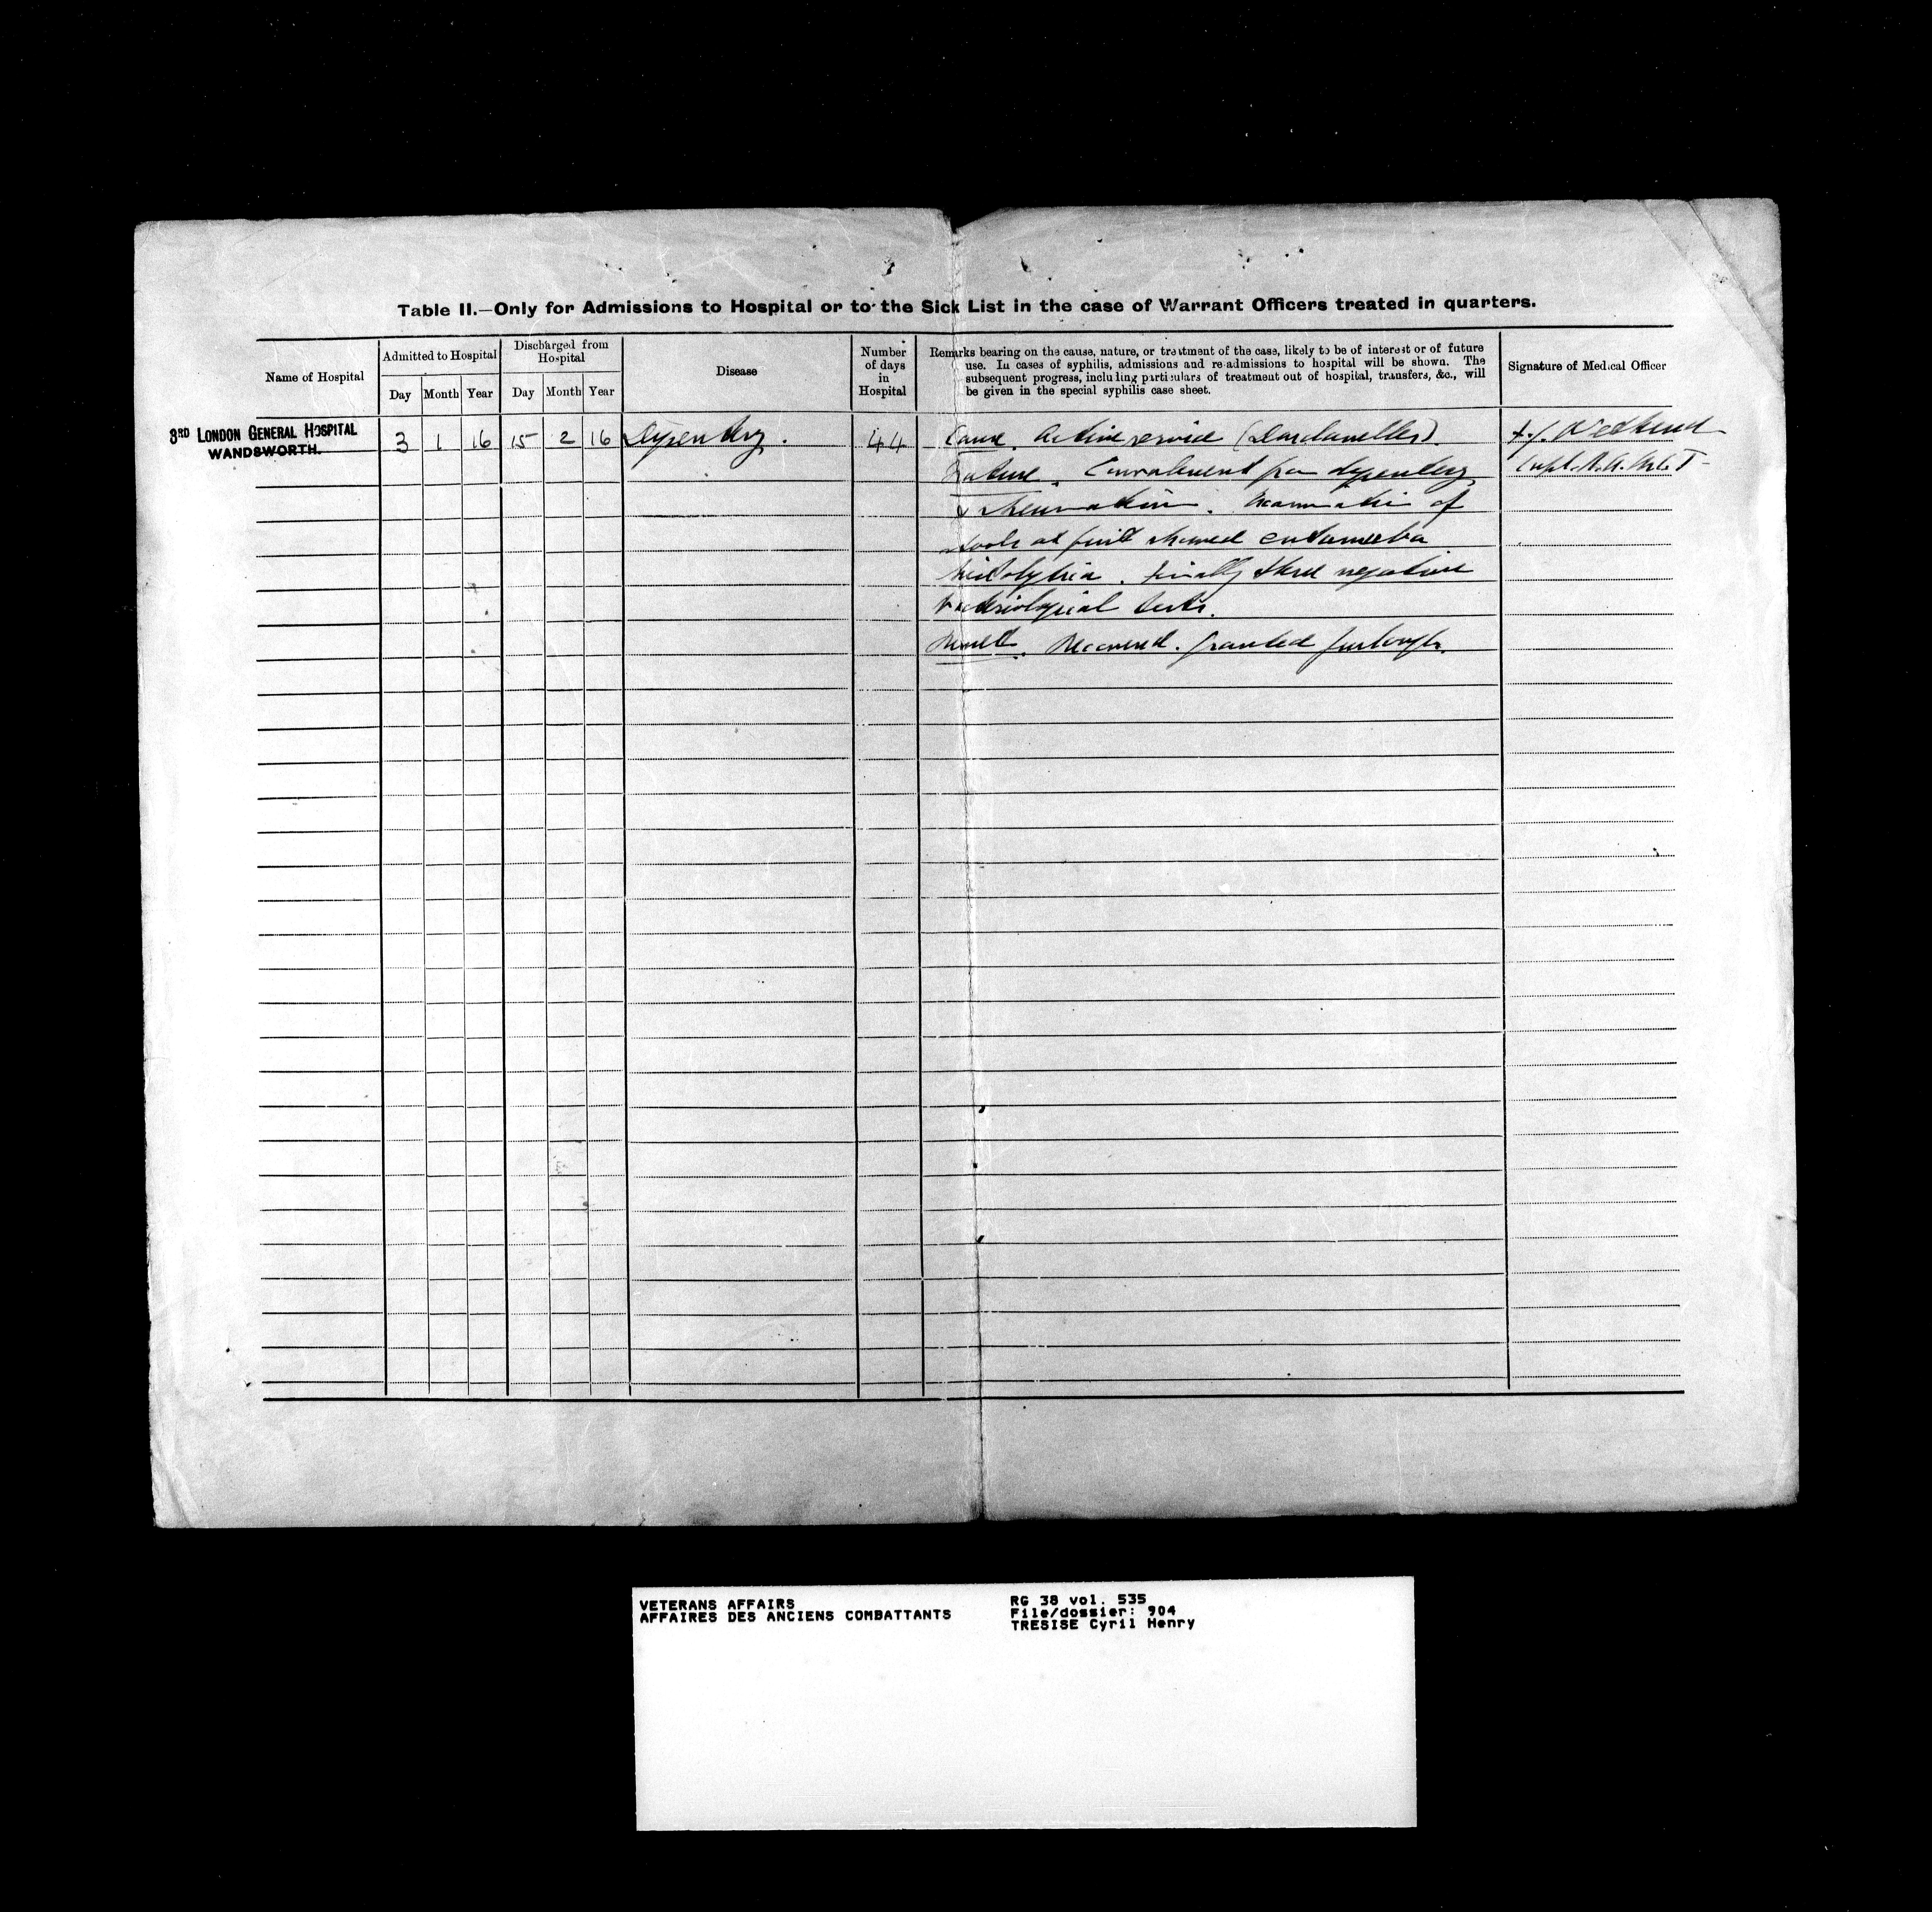 Table II.—Only for Admissions to Hospital or to the Sick List in the case of Warrant Officers treated in quarters.
Name of Hospital
Admitted to Hospital
Day Month Year
Discharged from
Hospital
Day Month Year
Disease
Number
of days
in
Hospital
Remarks bearing on the cause, nature, or treatment of the case, likely to be of interest or of future
use. In cases of syphilis, admissions and re-admissions to hospital will be shown. The
subsequent progress, including particulars of treatment out of hospital, transfers, &c., will
be given in the special syphilis case sheet.
Signature of Medical Officer
3RD LONDON GENERAL HOSPITAL
WANDSWORTH.
3 1 16 15 2 16 Dysentery. 44
Cause. Active service (Dardanelles).
Nature. Convalescent from dysentery
& rheumatism. Examination of
stools at first showed entamoeba
histolytica. Finally three negative
bacteriological tests.
Result. Recovered. Granted furlough.
Capt. R.A.M.C.T.
VETERANS AFFAIRS
AFFAIRES DES ANCIENS COMBATTANTS
RG 38 vol. 535
File/dossier: 904
TRESISE Cyril Henry